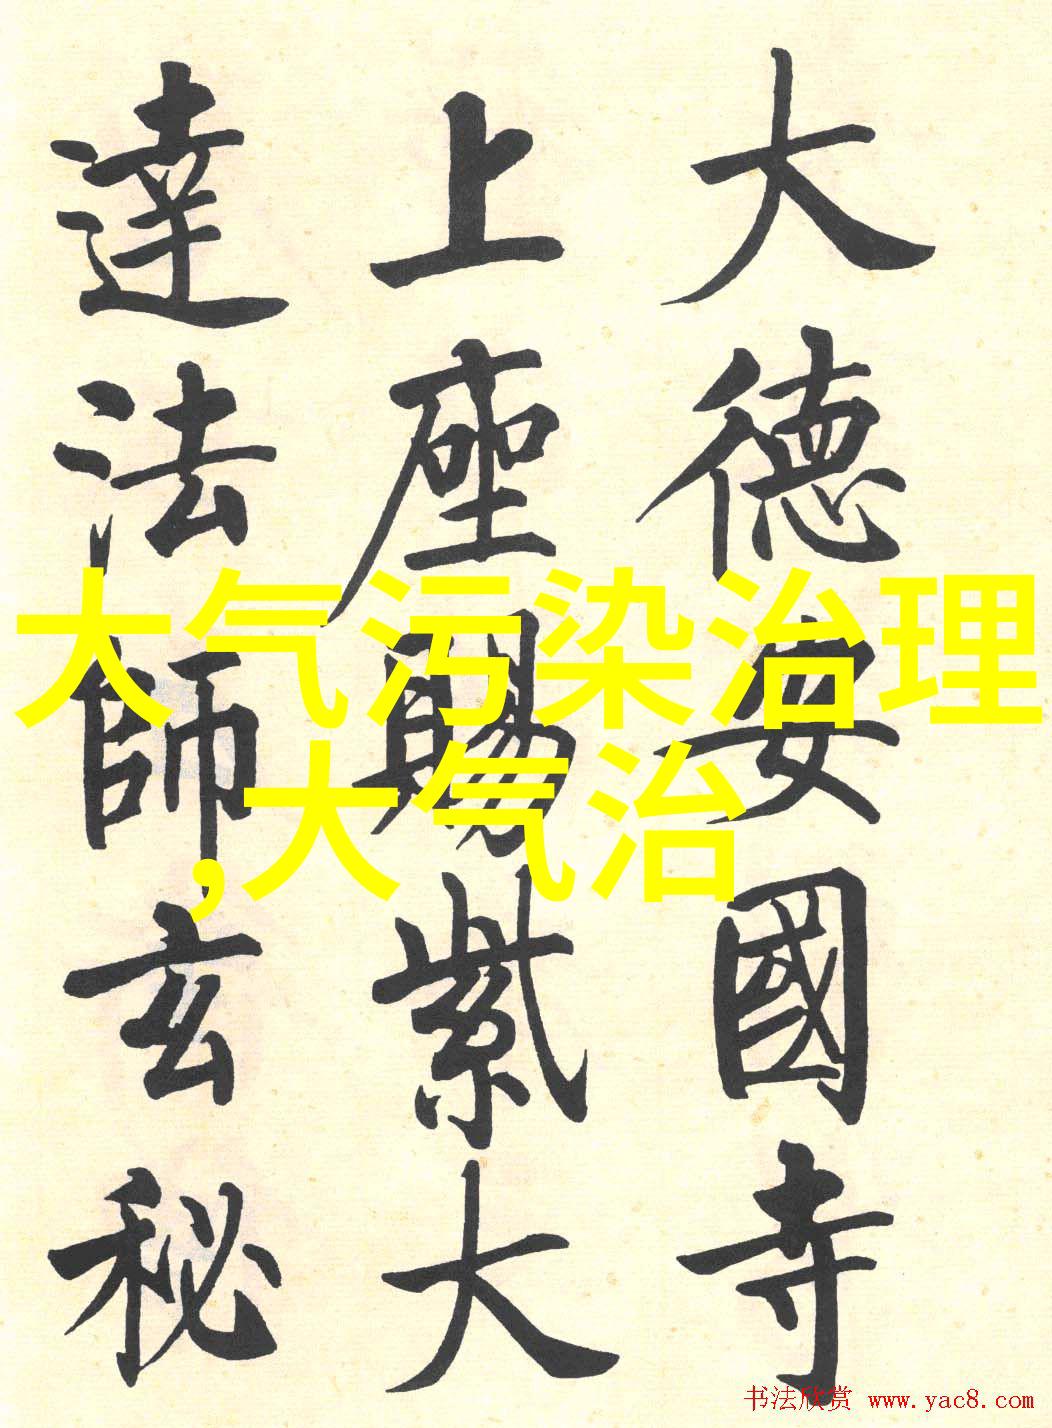 大德安國寺
上座賜紫大
達法師玄秘
大气污染治理
,大气治
书法欣赏 www.yac8.com